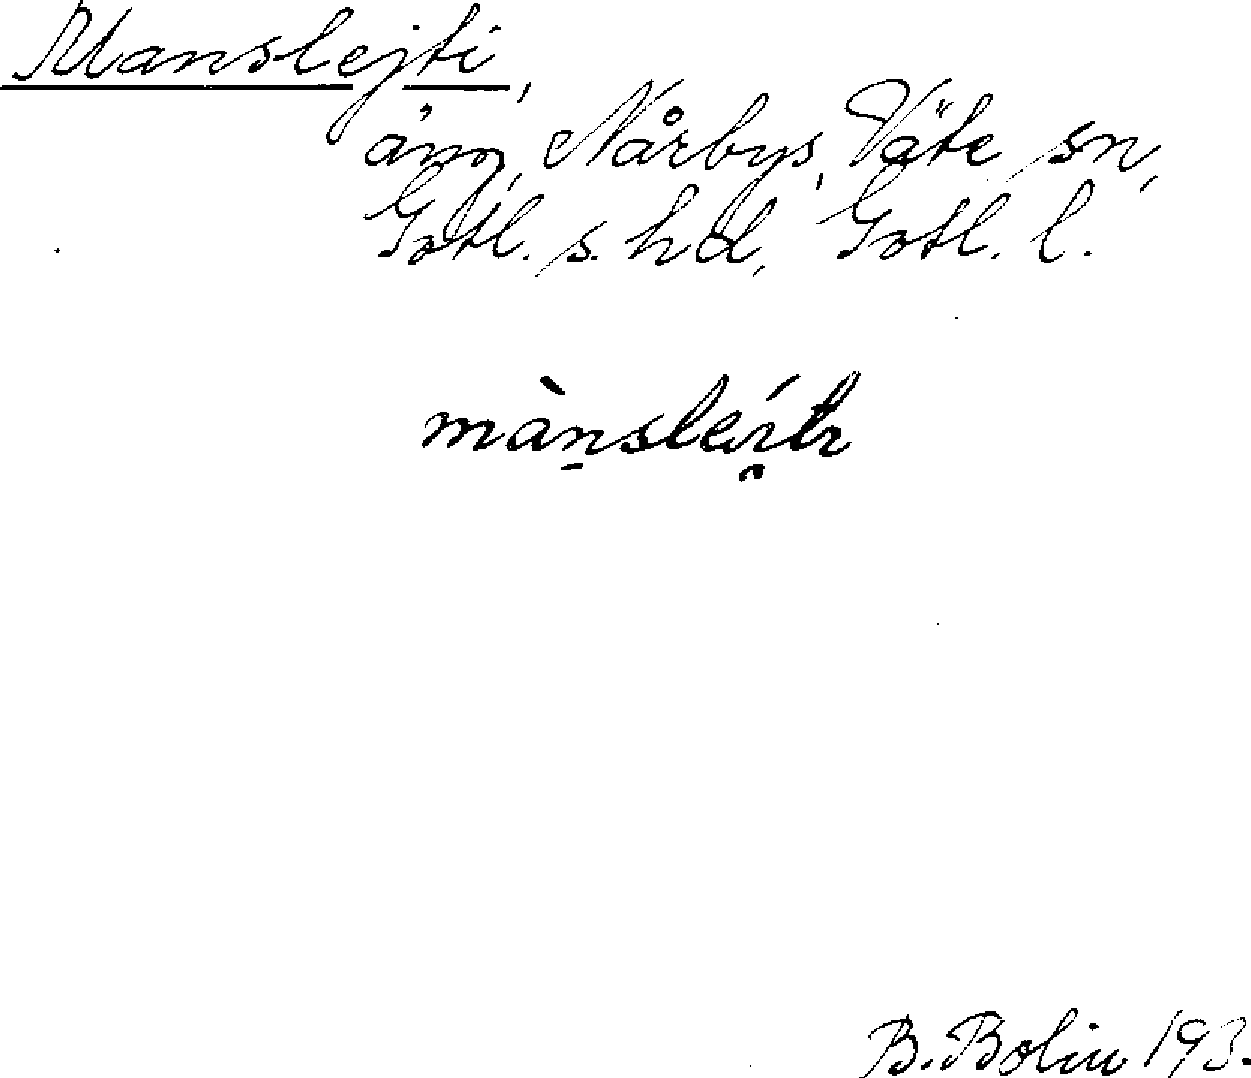 Manslejti,
äng, Nårbys, Väte sn,
Gotl. s. hd, Gotl. l.
B. Bolin 193.